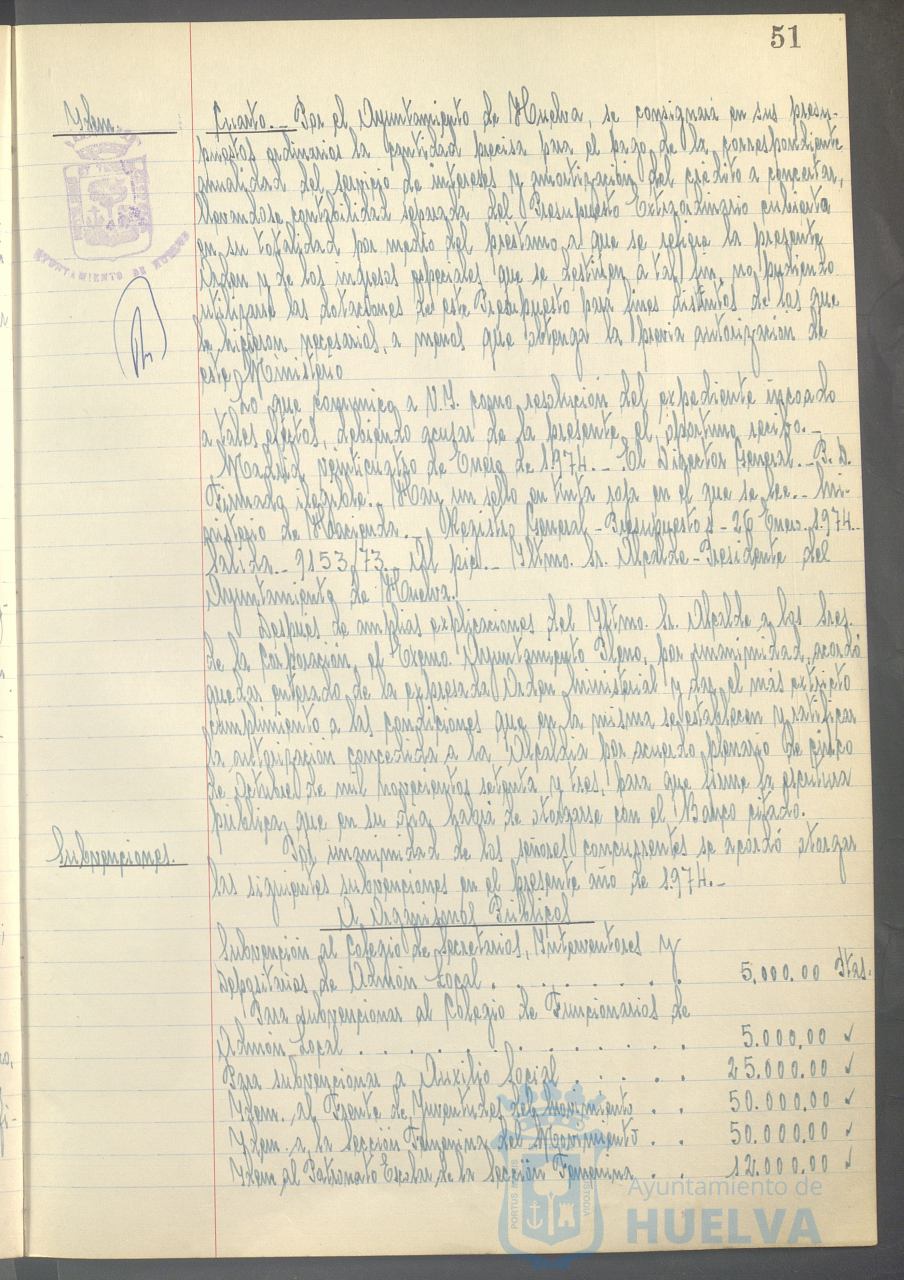 51
Ydem.
Cuarto.- Por el Ayuntamiento de Huelva, se consignará en sus presu-
puestos ordinarios la cantidad precisa para el pago de la correspondiente
anualidad del servicio de intereses y amortización del crédito a concertar,
llevandose contabilidad separada del Presupuesto Extraordinario cubierto
en su totalidad por medio del préstamo a que se refiere la presente
Orden y de los ingresos especiales que se destinen a tal fin, no pudiendo
utilizarse las dotaciones de este Presupuesto para fines distintos de los que
le hicieron necesarios, a menos que obtenga la previa autorización de
este Ministerio
Lo que comunico a V.I. como resolución del expediente incoado
a tales efectos, debiendo acusar de la presente el oportuno recibo.-
Madrid, veinticuatro de Enero de 1.974.- El Director General.- P.D.
Firmado, ilegible.- Hay un sello en tinta roja en el que se lee.- Mi-
nisterio de Hacienda.- Registro General - Presupuestos - 26 Enero. 1.974.-
Salida.- 9153,73.- Al pié.- Iltmo. Sr. Alcalde-Presidente del
Ayuntamiento de Huelva.
Despues de amplias explicaciones del Yltmo. Sr. Alcalde a los Sres.
de la Corporación, el Excmo. Ayuntamiento Pleno, por unanimidad, acordó
quedar enterado de la expresada Orden Ministerial y dar el más estricto
cumplimiento a las condiciones que en la misma se establecen y ratificar
la autorización concedida a la Alcaldia por acuerdo plenario de cinco
de Octubre de mil novecientos setenta y tres, para que firme la escritura
pública, que en su dia habia de otorgarse con el Banco citado.
Subvenciones.
Por unanimidad de los señores concurrentes se acordó otorgar
las siguientes subvenciones en el presente año de 1974.-
A Organismos Públicos
Subvención al Colegio de Secretarios, Interventores y
Depositarios de Admón Local . . . . . . . 5.000.00 Ptas.
Para subvencionar al Colegio de Funcionarios de
Admón Local . . . . . . . . . . . . . 5.000.00 ✓
Para subvencionar a Auxilio Social . . . . . 25.000.00 ✓
Ydem. al Frente de Juventudes del Movimiento . . 50.000.00 ✓
Ydem. a la Sección Femenina del Movimiento . . 50.000.00 ✓
Ydem al Patronato Escolar de la Sección Femenina . . 12.000.00 ✓
AYUNTAMIENTO DE HUELVA
PORTUS
CUSTODIA
Ayuntamiento de
HUELVA